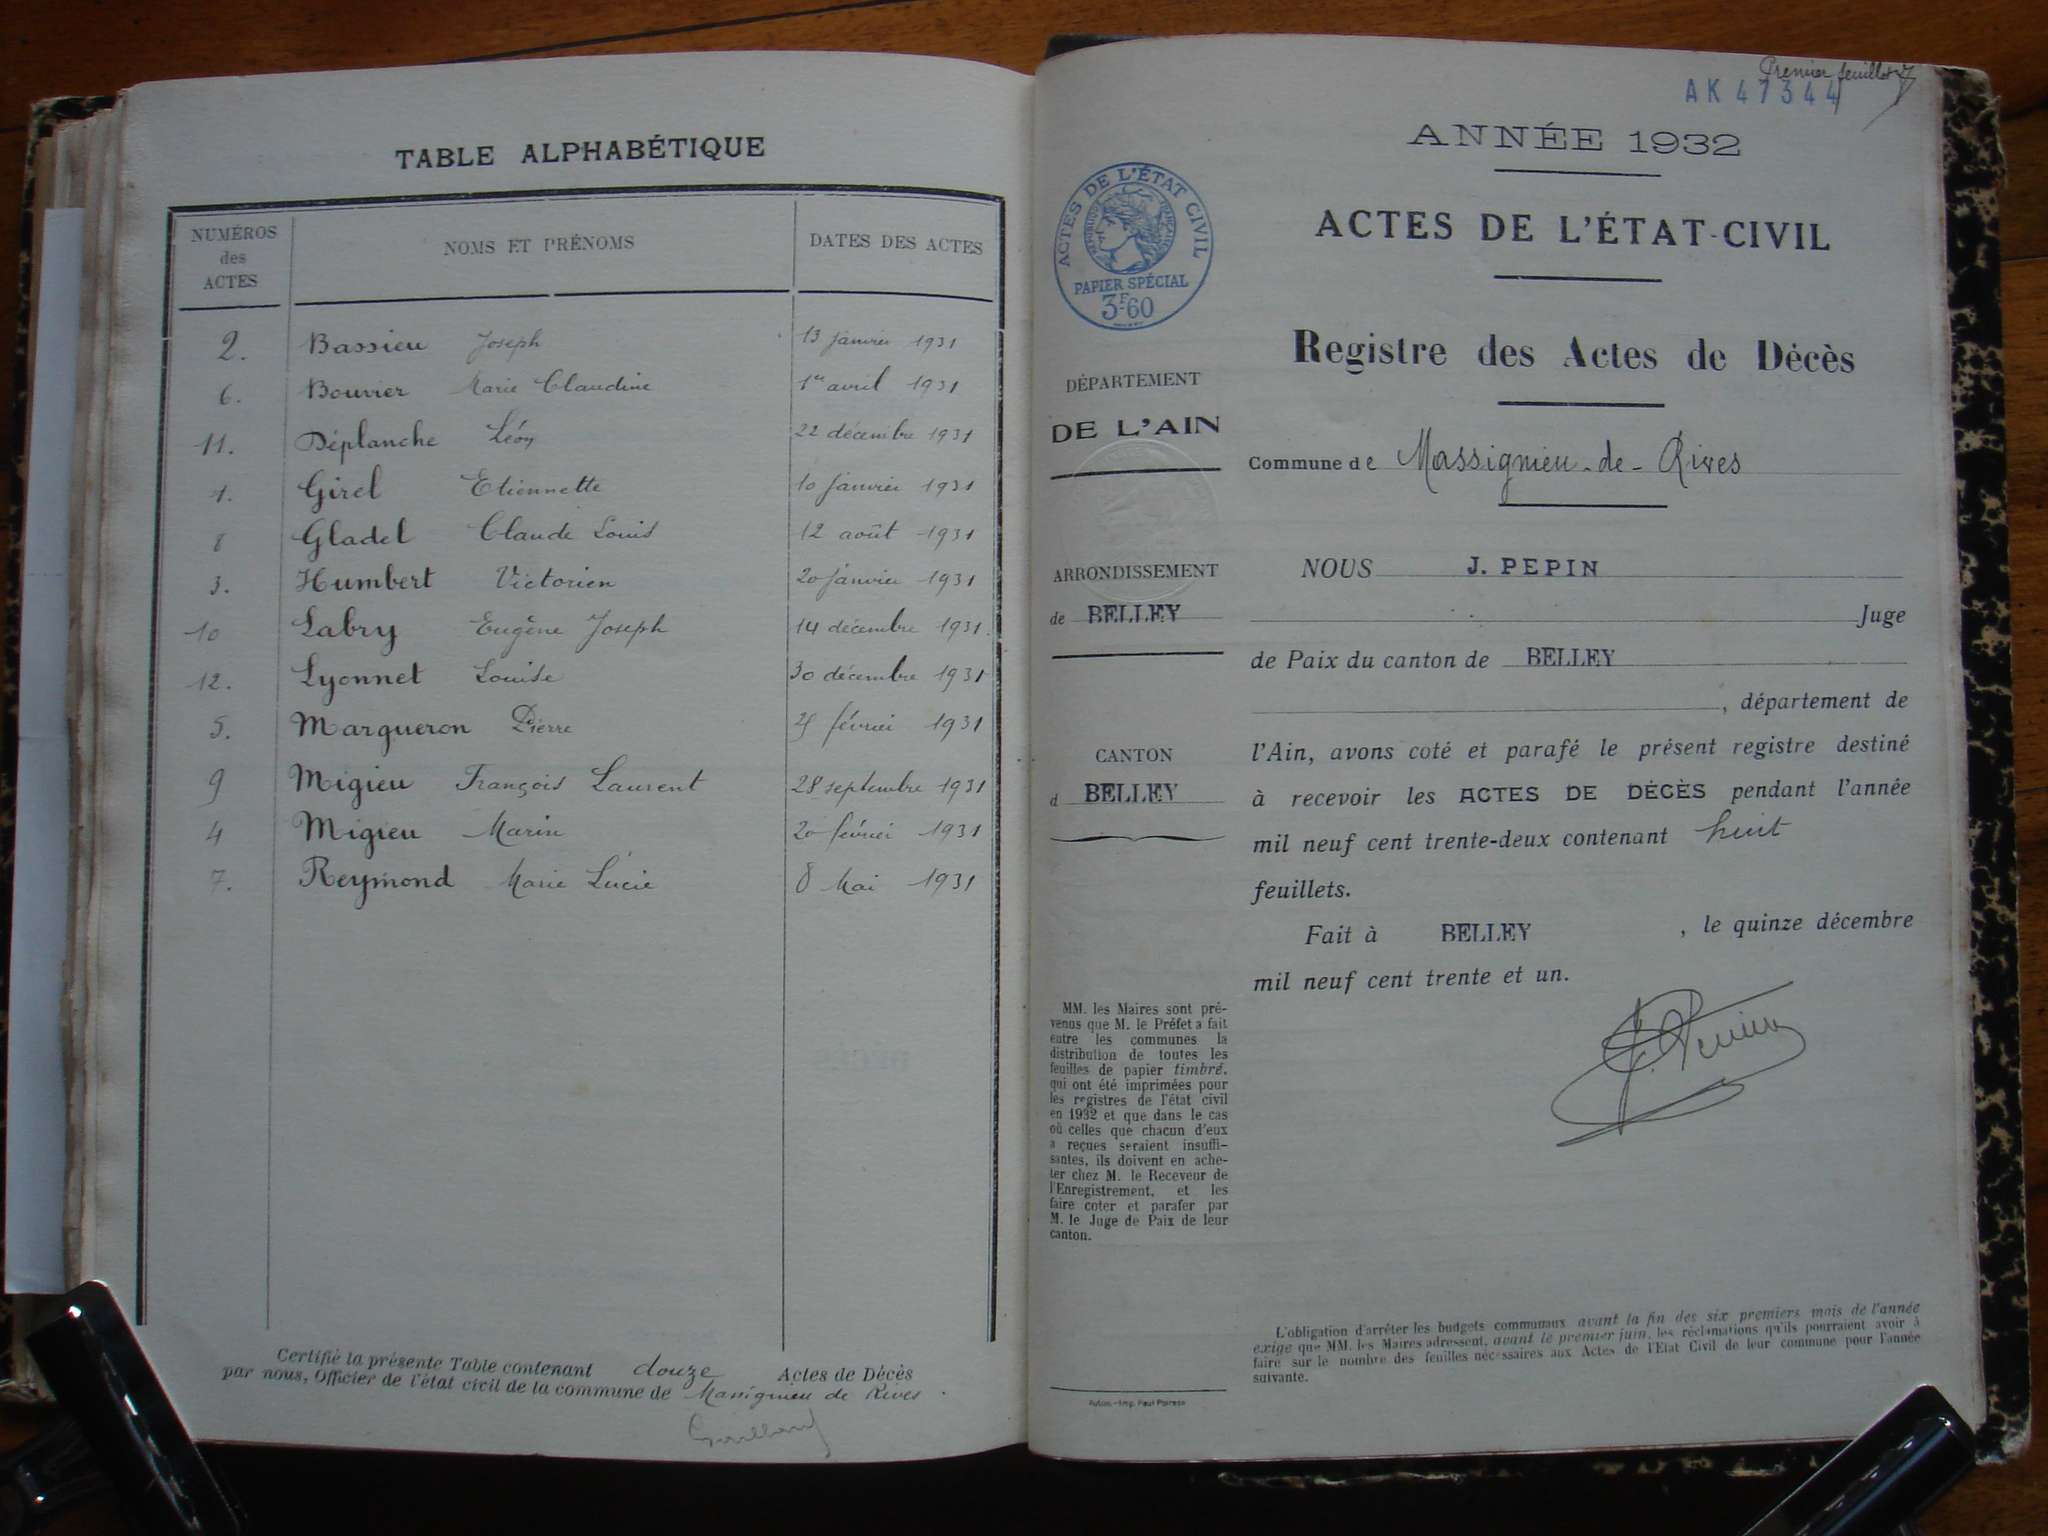 TABLE ALPHABÉTIQUE
NUMÉROS des ACTES NOMS ET PRÉNOMS DATES DES ACTES
2. Bassieu Joseph 13 janvier 1931
6. Bouvier Marie Claudine 1er avril 1931
11. Déplanche Léon 22 décembre 1931
1. Girel Etiennette 10 janvier 1931
8 Gladel Claude Louis 12 août 1931
3. Humbert Victorien 20 janvier 1931
10 Labry Eugène Joseph 14 décembre 1931.
12. Lyonnet Louise 30 décembre 1931
5. Margueron Pierre février 1931
9 Migieu François Laurent 28 septembre 1931
4 Migieu Marin 20 février 1931
7. Reymond Marie Lucie 8 Mai 1931
Certifié la présente Table contenant douze Actes de Décès
par nous, Officier de l'état civil de la commune de Massignieu de Rives.
Premier feuillet
AK 47344
ANNÉE 1932
ACTES DE L'ÉTAT-CIVIL
Registre des Actes de Décès
ACTES DE L'ÉTAT CIVIL
RÉPUBLIQUE FRANÇAISE
PAPIER SPÉCIAL
3F60
DÉPARTEMENT
DE L'AIN
ARRONDISSEMENT
de BELLEY
CANTON
d BELLEY
MM. les Maires sont pré-
venus que M. le Préfet a fait
entre les communes la
distribution de toutes les
feuilles de papier timbré,
qui ont été imprimées pour
les registres de l'état civil
en 1932 et que dans le cas
où celles que chacun d'eux
a reçues seraient insuffi-
santes, ils doivent en ache-
ter chez M. le Receveur de
l'Enregistrement, et les
faire coter et parafer par
M. le Juge de Paix de leur
canton.
Autun. - Imp. Paul Poirson
Commune de Massignieu-de-Rives
NOUS J. PEPIN
Juge
de Paix du canton de BELLEY
, département de
l'Ain, avons coté et parafé le présent registre destiné
à recevoir les ACTES DE DÉCÈS pendant l'année
mil neuf cent trente-deux contenant huit
feuillets.
Fait à BELLEY, le quinze décembre
mil neuf cent trente et un.
L'obligation d'arrêter les budgets communaux avant la fin des six premiers mois de l'année
exige que MM. les Maires adressent, avant le premier juin, les réclamations qu'ils pourraient avoir à
faire sur le nombre des feuilles nécessaires aux Actes de l'Etat Civil de leur commune pour l'année
suivante.